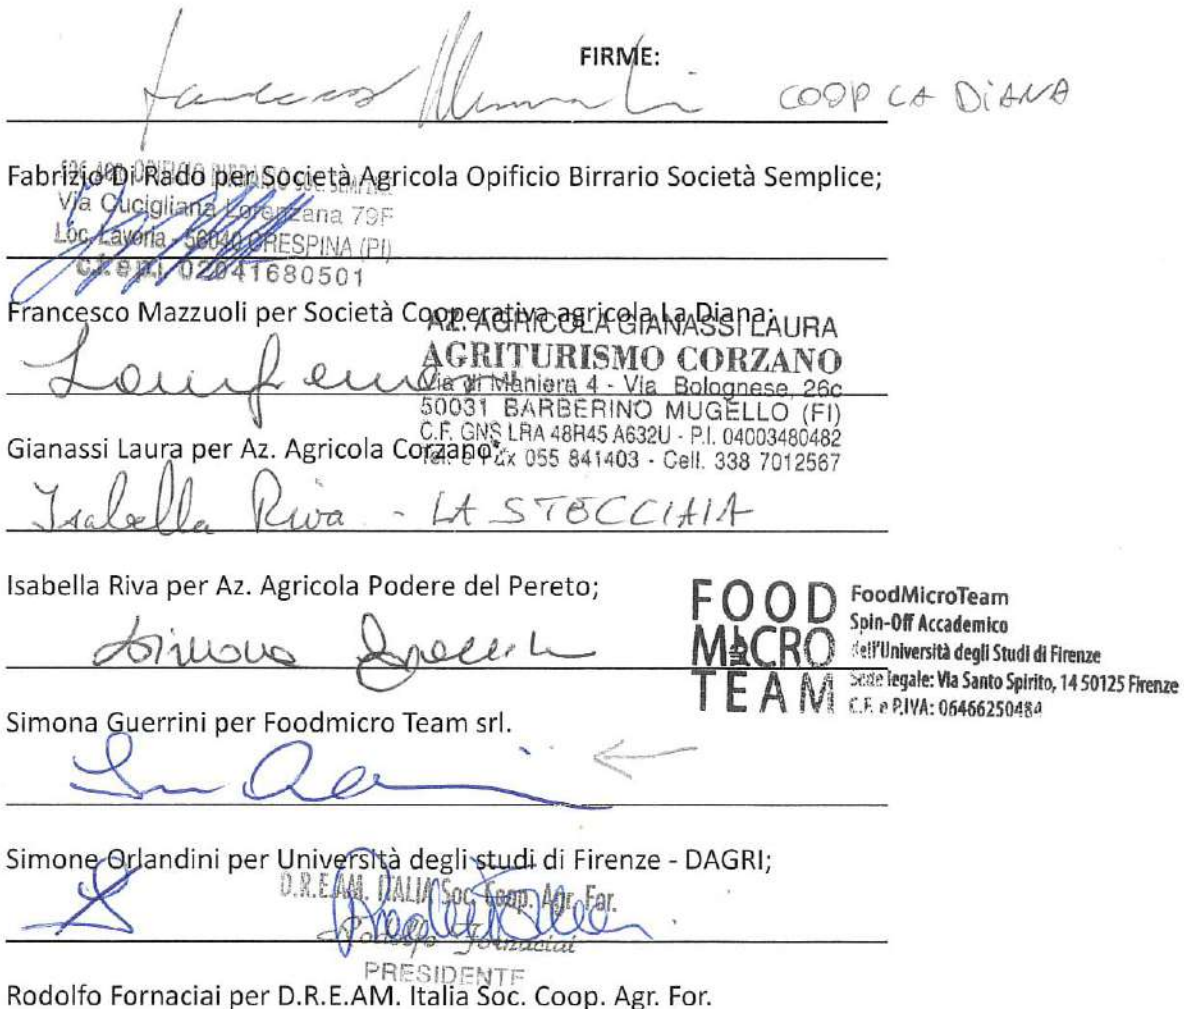 FIRME:
Francesco Mazzuoli COOP LA DIANA
Fabrizio Di Rado per Società Agricola Opificio Birrario Società Semplice;
SOC. AGR. OPIFICIO BIRRARIO SOC. SEMPLICE
Via Cucigliana Lorenzana 79F
Loc. Lavoria - 56040 CRESPINA (PI)
c.f. e p.i. 02041680501
Francesco Mazzuoli per Società Cooperativa agricola La Diana;
AZ. AGRICOLA GIANASSI LAURA
AGRITURISMO CORZANO
Via di Maniera 4 - Via Bolognese, 26c
50031 BARBERINO MUGELLO (FI)
C.F. GNS LRA 48H45 A632U - P.I. 04003480482
Tel. e Fax 055 841403 - Cell. 338 7012567
Gianassi Laura per Az. Agricola Corzano;
Isabella Riva - LA STECCIAIA
Isabella Riva per Az. Agricola Podere del Pereto;
FOOD
MICRO
TEAM
FoodMicroTeam
Spin-Off Accademico
dell'Università degli Studi di Firenze
Sede legale: Via Santo Spirito, 14 50125 Firenze
C.F. e P.IVA: 06466250484
Simona
Simona Guerrini per Foodmicro Team srl.
Simone Orlandini per Università degli studi di Firenze - DAGRI;
D.R.E.AM. ITALIA Soc. Coop. Agr. For.
Rodolfo Fornaciai
PRESIDENTE
Rodolfo Fornaciai per D.R.E.AM. Italia Soc. Coop. Agr. For.